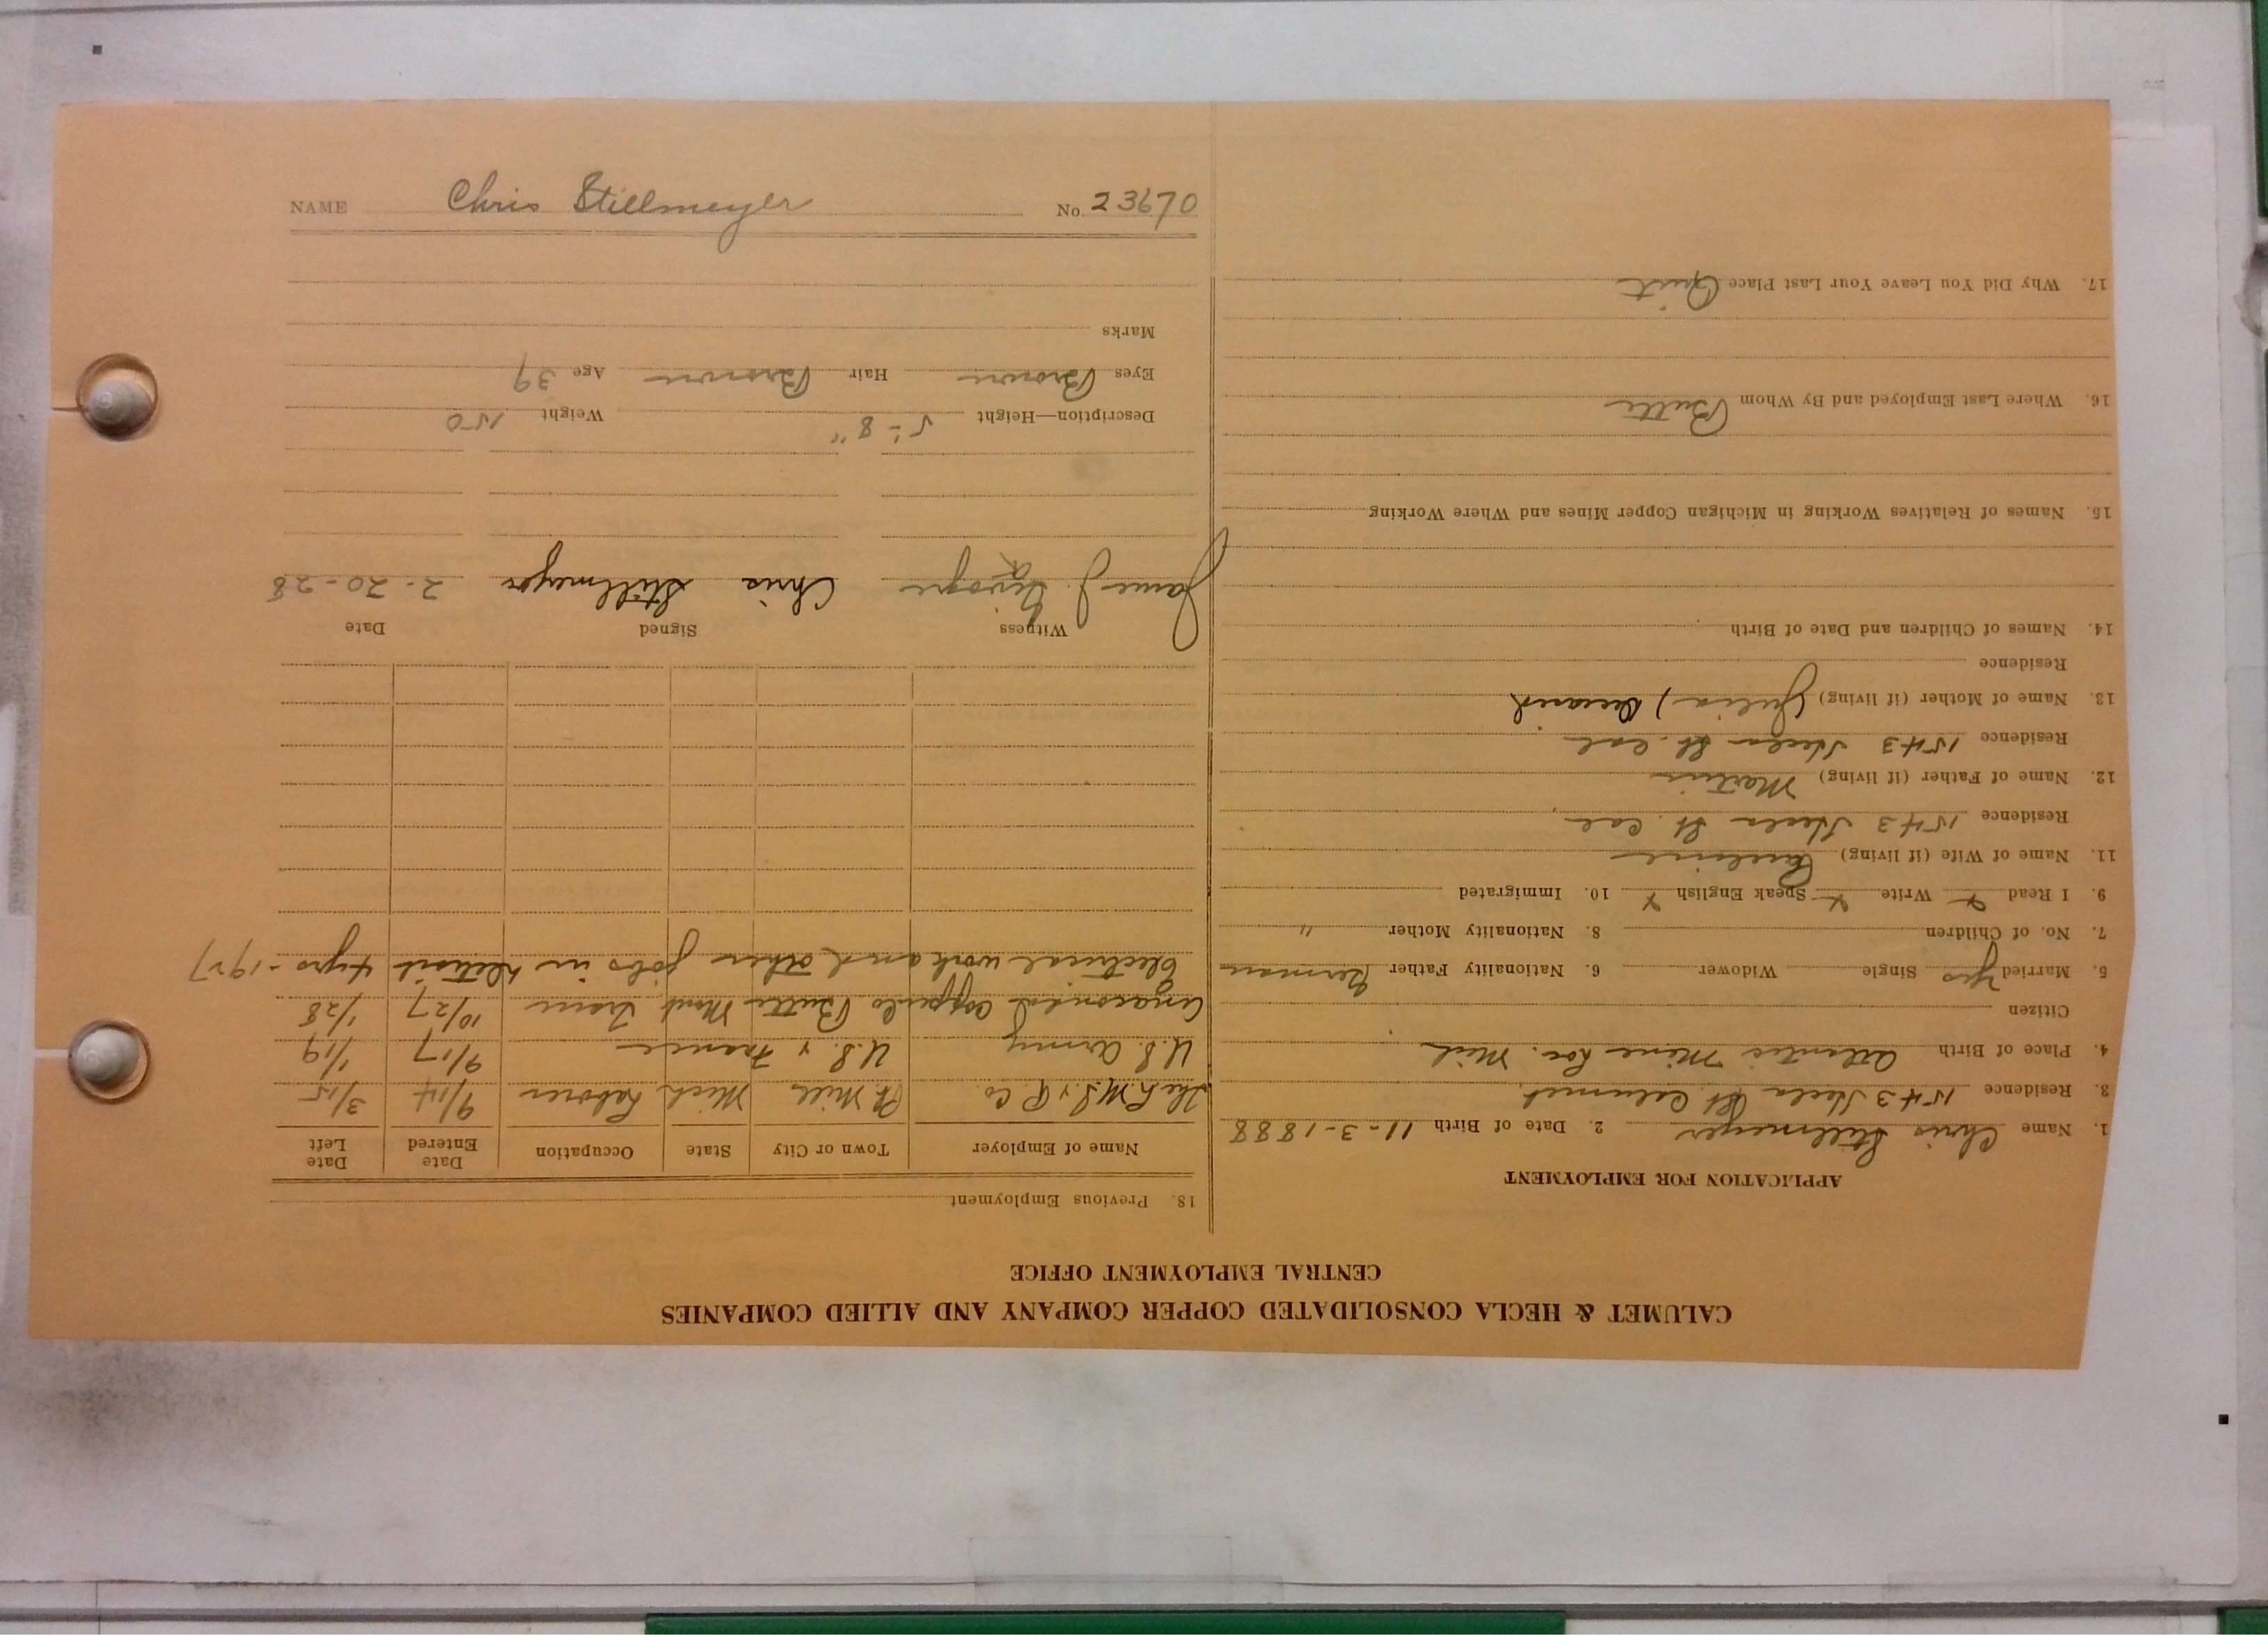 NAME Chris Stillmeyer No. 23670
CALUMET & HECLA CONSOLIDATED COPPER COMPANY AND ALLIED COMPANIES
CENTRAL EMPLOYMENT OFFICE
APPLICATION FOR EMPLOYMENT
1. Name Chris Stillmeyer 2. Date of Birth 11-3-1888
3. Residence 1543 Hecla St. Calumet
4. Place of Birth Atlantic Mine Loc. Mich
Citizen
5. Married Yes Single Widower 6. Nationality Father German
7. No. of Children 8. Nationality Mother "
9. I Read x Write x Speak English x 10. Immigrated
11. Name of Wife (if living) Pauline
Residence 1543 Hecla St. Cal
12. Name of Father (if living) Martin
Residence 1543 Hecla St. Cal
13. Name of Mother (if living) (Julia) Deceased
Residence
14. Names of Children and Date of Birth
15. Names of Relatives Working in Michigan Copper Mines and Where Working
16. Where Last Employed and By Whom Butte
17. Why Did You Leave Your Last Place Quit
18. Previous Employment
Name of Employer Town or City State Occupation Date Entered Date Left
The L. M. S. & R Co. Pt Mills Mich Laborer 9/14 3/15
U.S. Army U.S. & France 9/17 1/19
Anaconda Copper Co Butte Mont 10/27 1/28
Electrical work and other jobs in Detroit 4 yrs - 1927
Witness Signed Date
James J. Chris Stillmeyer 2-20-28
Description—Height 5'-8" Weight 150
Eyes Brown Hair Brown Age 39
Marks